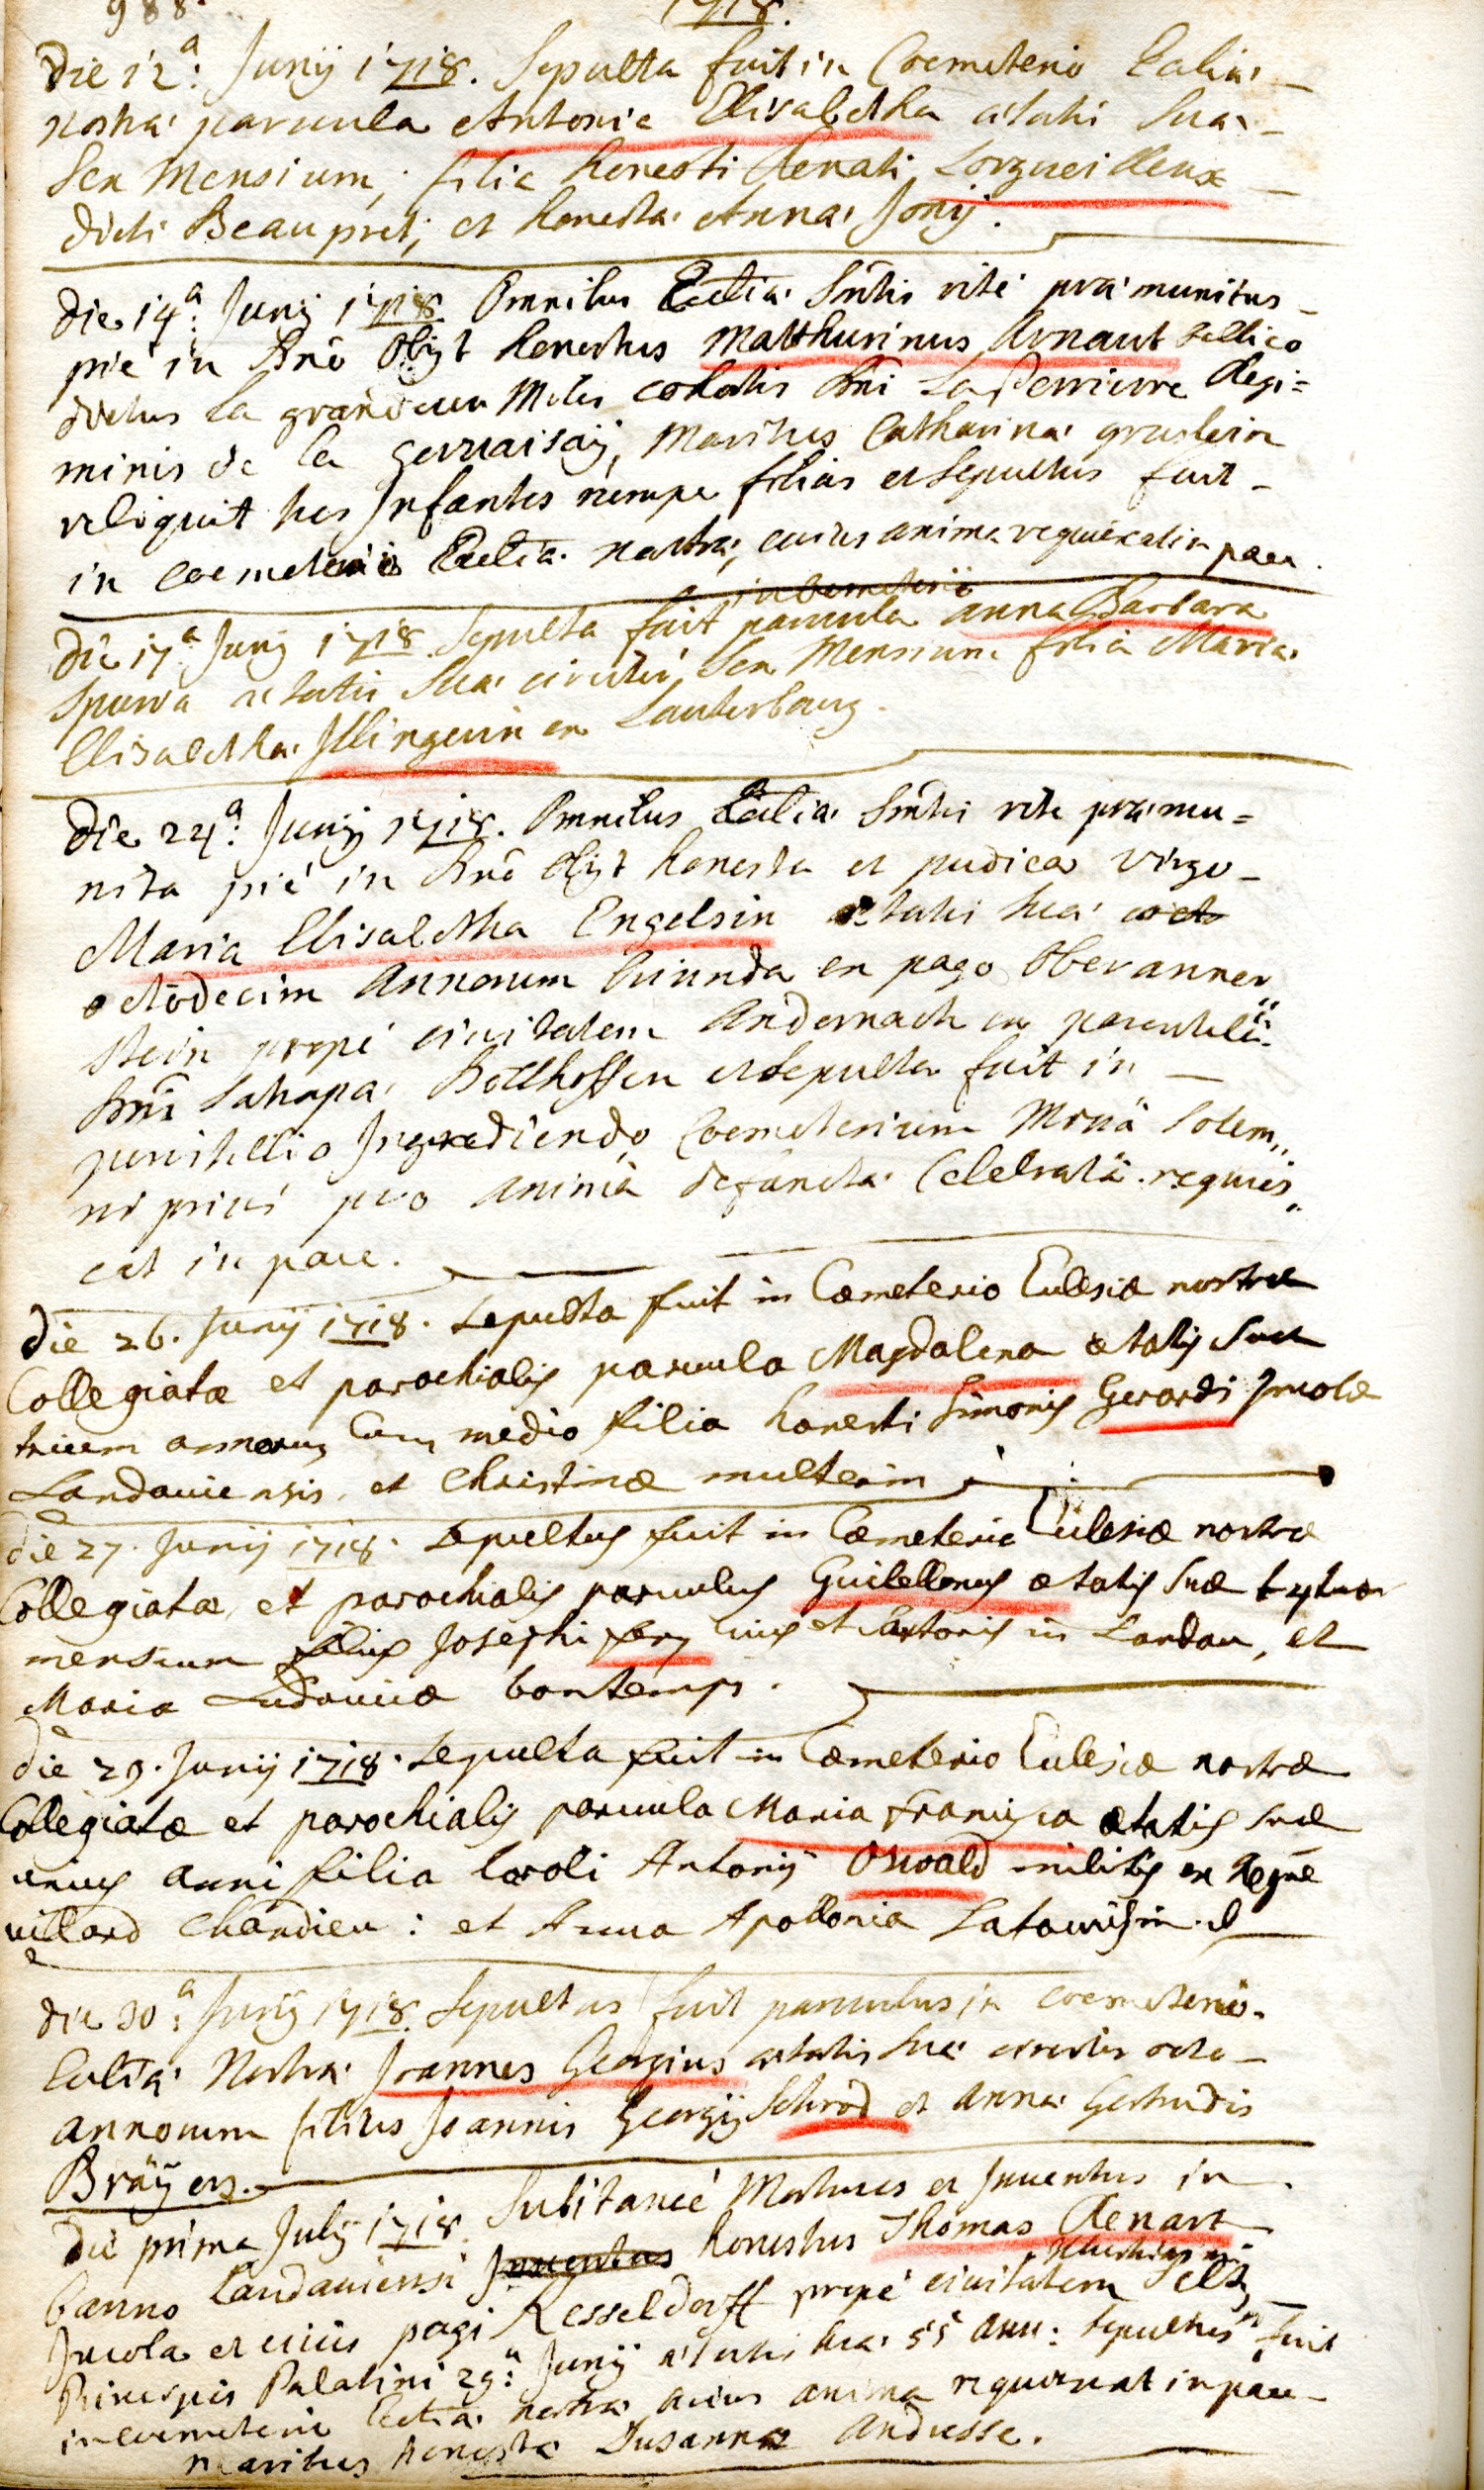 988. 1718.
Die 12ª: Junÿ 1718. Sepulta fuit in Coemeterio Eccliæ
nostræ parvula Antonia Elisabetha ætatis suæ
sex Mensium, filia honesti Renati Lorgueilleux
dicti Beaupret, et honestæ Annæ Jonÿ.
Die 14ª: Junÿ 1718 Omnibus Eccliæ Sm̃tis rité præmunitus
pié in Dnõ Obÿt honestus Matthurinus Arnaut bellico
dictus la grandeur Miles cohortis Dñi Laperrierre Regi=
minis de la gervaisaÿ, Maritus Catharinæ gruslerin
reliquit tres Infantes nempe filias et sepultus fuit
in coemeterio Eccliæ nostræ, cuius anima requiescat in pace.
in coemeterio
Die 17ª Junÿ 1718 Sepulta fuit parvula anna Barbara
spuria ætatis suæ circiter sex Mensium filia Mariæ
Elisabethæ Illingerin ex Lauterbourg.
Die 24ª: Junÿ 1718. Omnibus Eccliæ Sm̃tis rite præmu=
nita pié in Dnõ Obÿt honesta et pudica Virgo
Maria Elisabetha Engelsin ætatis suæ
octodecim annorum oriunda ex pago Oberanner
stein propé civitatem Andernach ex parentelâ
Dñi Satrapæ Bollhoffen et sepulta fuit in
peristillio Ingrediendo Coemeterium Missâ Solem„
ni priús pro animâ defunctæ Celebratâ. requies„
cat in pace.
Die 26. Junÿ 1718. Sepulta fuit in Cœmeterio Ecclesiæ nostræ
Collegiatæ et parochialis parvula Magdalena ætatis suæ
trium annorum Cum medio filia honesti Simonis Gerardi Incolæ
Landaviensis, et Christinæ multerin
Die 27. Junÿ 1718. Sepultus fuit in Cœmeterio Ecclesiæ nostræ
Collegiatæ et parochialis parvulus Guilellmus ætatis suæ
mensium filius Josephi fery civis et sartoris in Landau, et
Maria Ludovica bontemps.
Die 29. Junÿ 1718. Sepulta fuit in Cœmeterio Ecclesiæ nostræ
Collegiatæ et parochialis parvula Maria francisca ætatis suæ
unius anni filia Caroli Antonÿ Oswald militis ex Regne
villard Chandieu: et Anna Apollonia
Die 30ª: Junÿ 1718. Sepultus fuit parvulus in coemeterio
Eccliæ Nostræ Joannes Georgius ætatis suæ circiter octo
annorum filius Joannis Georgÿ Schrod et annæ Gertrudis
Braÿers.
Die prima Julÿ 1718. Subitaneé Mortuus et Inventus in
banno Landaviensi Inventus honestus Thomas Renart
Incola et civis pagi Kesseldorff propé civitatem Seltz
Principis Palatini 29ª: Junÿ ætatis suæ 55 ann: sepultus fuit
in coemeterio Eccliæ nostræ cuius anima requiescat in pace
maritus honestæ Susannæ Andresse.